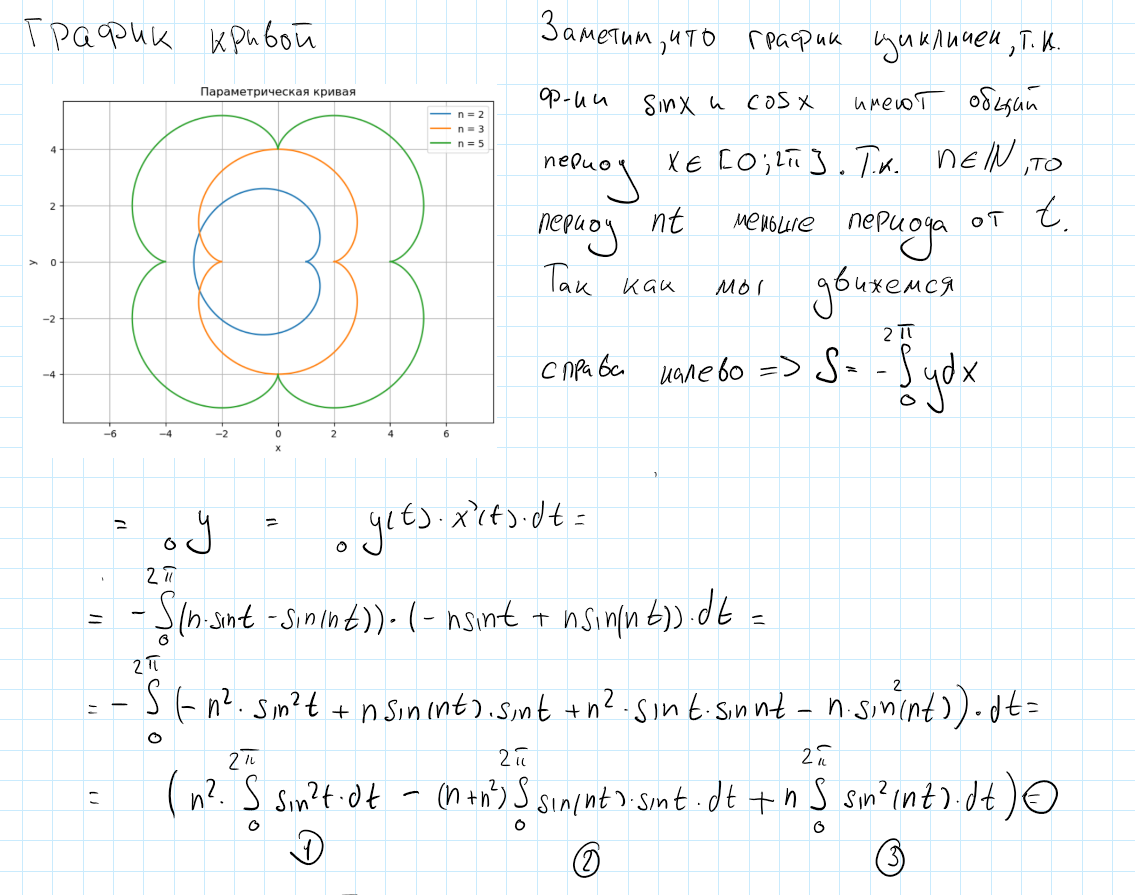 График кривой
Параметрическая кривая
n = 2
n = 3
n = 5
4
2
0
−2
−4
y
−6 −4 −2 0 2 4 6
x
Заметим, что график цикличен, т.к.
ф-ии sinx и cosx имеют общий
период x∈[0;2π]. Т.к. n∈ℕ, то
период nt меньше периода от t.
Так как мы движемся
справа налево => S = -∫₀^{2π} ydx
= ₀ y = ₀ y(t)·x'(t)·dt =
= -∫₀^{2π} (n·sint - sin(nt))·(-nsint + nsin(nt))·dt =
= -∫₀^{2π} (-n²·sin²t + nsin(nt)·sint + n²·sint·sinnt - n·sin²(nt))·dt =
= (n²·∫₀^{2π} sin²t·dt - (n+n²)∫₀^{2π} sin(nt)·sint·dt + n∫₀^{2π} sin²(nt)·dt) ⊜
① ② ③